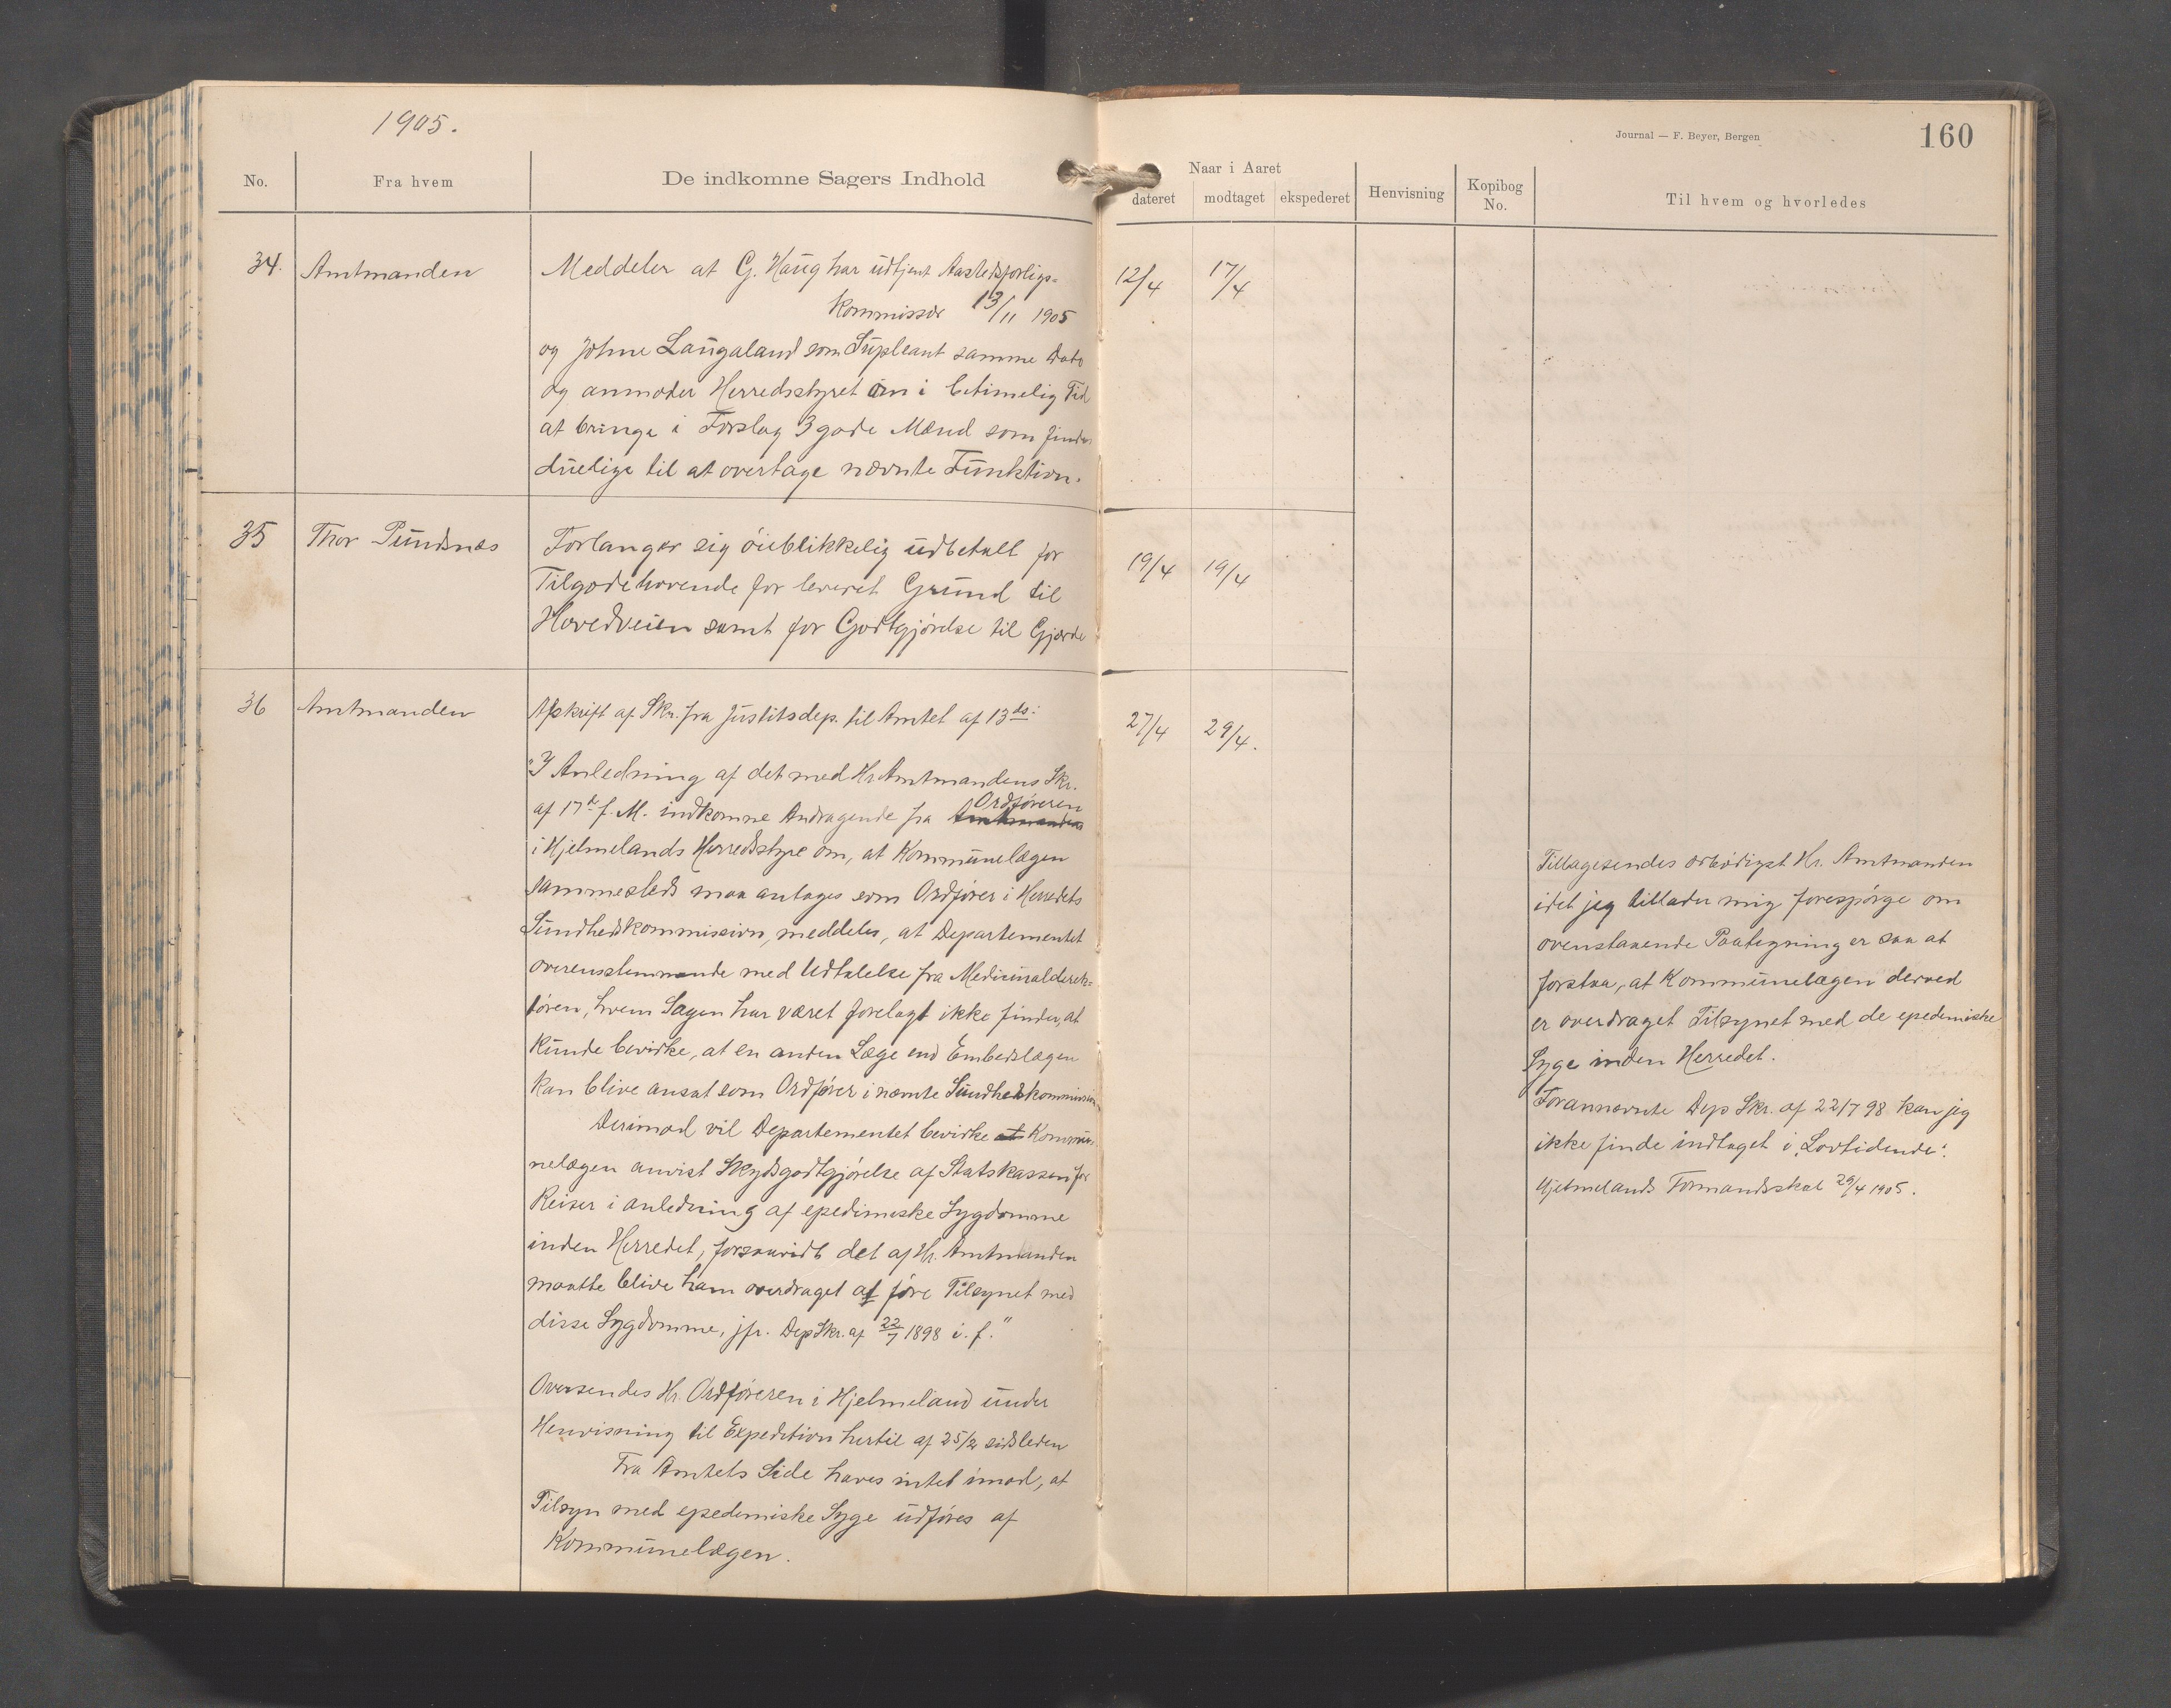 1905.
Journal — F. Beyer, Bergen
160
No.
Fra hvem
De indkomne Sagers Indhold
Naar i Aaret
dateret
modtaget
ekspederet
Henvisning
Kopibog
No.
Til hvem og hvorledes
34. Amtmanden Meddeler at G. Haug har udtjent Aastedsforligs- 12/4 17/4
Kommissær 13/11 1905
og Johne Laugaland som Supleant samme Dato
og anmoder Herredsstyret om i betimelig Tid
at bringe i Forslag 3 gode Mænd som findes
duelige til at overtage nævnte Funktion.
35 Thor Pundsnes Forlanger sig øieblikkelig udbetalt for 19/4 19/4
Tilgodehavende for leveret Grund til
Hovedveien samt for Godtgjørelse til Gjærde
36 Amtmanden Afskrift af Skr. fra Justitsdep. til Amtet af 13 ds: 27/4 29/4.
"I Anledning af det med Hr. Amtmandens Skr.
af 17de f. M. indkomne Andragende fra Amtmanden Ordføreren
i Hjelmelands Herredsstyre om, at Kommunelægen
sammesteds maa antages som Ordfører i Herredets
Sundhedskommission, meddeles, at Departementet
overensstemmende med Udtalelse fra Medicinaldirek-
tøren, hvem Sagen har været forelagt ikke finder, at
kunde bevirke, at en anden Læge end Embedslægen
kan blive ansat som Ordfører i nævnte Sundhedskommission.
Derimod vil Departementet bevirke at Kommu-
nelægen anvist Skydsgodtgjørelse af Statskassen for
Reiser i anledning af epedimiske Sygdomme
inden Herredet, forsaavidt det af Hr. Amtmanden
maatte blive ham overdraget at føre Tilsynet med
disse Sygdomme, jfr. Dep Skr. af 22/7 1898 i. f."
Oversendes Hr. Ordføreren i Hjelmeland under
Henvisning til Expedition hertil af 25/2 sidsleden
Fra Amtets Side haves intet imod, at
Tilsyn med epedemiske Syge udføres af
Kommunelægen.
Tilbagesendes ærbødigst Hr. Amtmanden
idet jeg tillader mig forespørge om
ovenstaaende Paategning er saa at
forstaa, at Kommunelægen derved
er overdraget Tilsynet med de epedemiske
Syge inden Herredet.
Forannævnte Dep Skr. af 22/7 98 kan jeg
ikke finde indtaget i "Lovtidende".
Hjelmelands Formandsskab 29/4 1905.